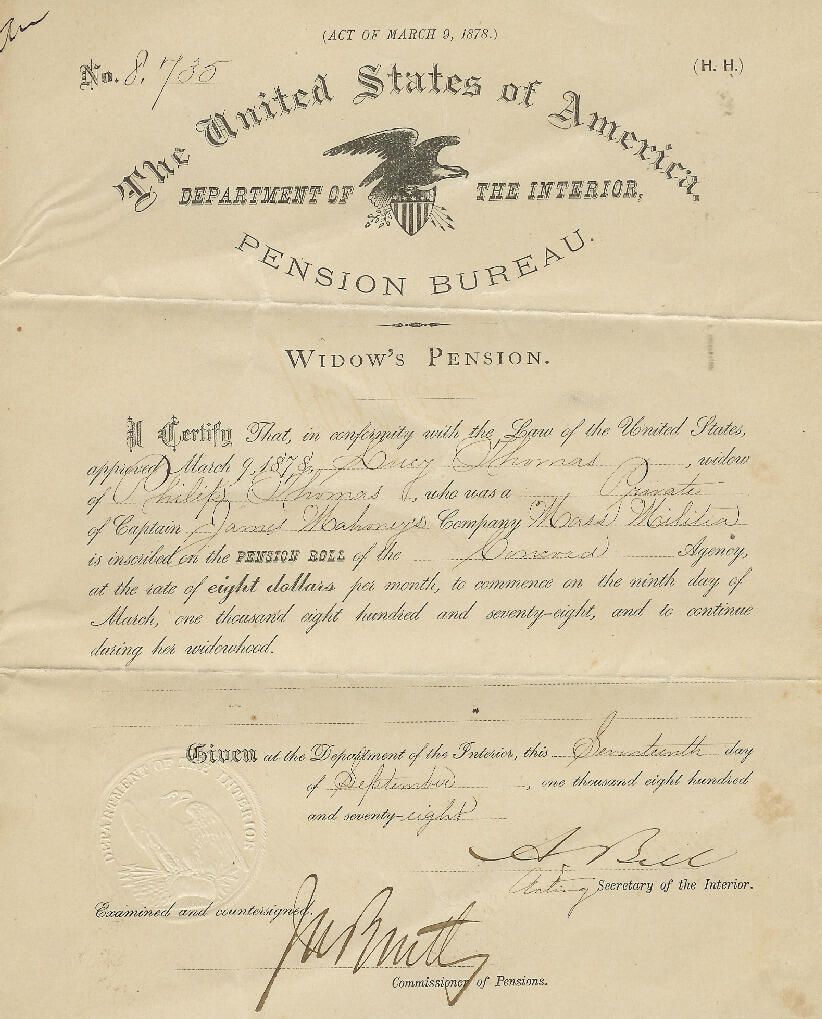 (ACT OF MARCH 9, 1878.)
No. 8,735
(H. H.)
The United States of America,
DEPARTMENT OF THE INTERIOR,
PENSION BUREAU.
WIDOW'S PENSION.
I Certify That, in conformity with the Law of the United States,
approved March 9, 1878, Lucy Thomas, widow
of Philip Thomas, who was a Private
of Captain James Mahoney's Company Mass Militia
is inscribed on the PENSION ROLL of the Concord Agency,
at the rate of eight dollars per month, to commence on the ninth day of
March, one thousand eight hundred and seventy-eight, and to continue
during her widowhood.
Given at the Department of the Interior, this Seventeenth day
of September, one thousand eight hundred
and seventy-eight
DEPARTMENT OF THE INTERIOR
A. Bell
Acting Secretary of the Interior.
Examined and countersigned.
Commissioner of Pensions.